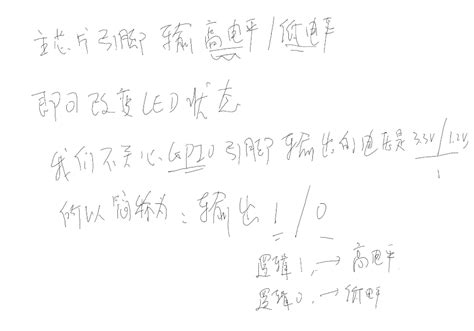 主芯片引脚输高电平/低电平
即可改变LED状态
我们不关心GPIO引脚输出的电压是3.3V/1.2V
1
所以简称为:输出1/0
逻辑1→高电平
逻辑0→低电平